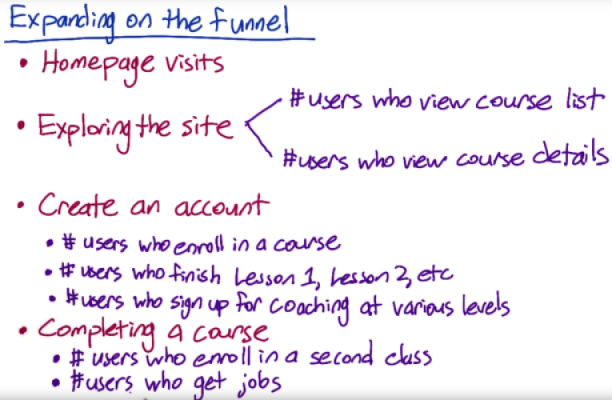 Expanding on the funnel
• Homepage visits
• Exploring the site
#users who view course list
#users who view course details
• Create an account
• # users who enroll in a course
• # users who finish Lesson 1, Lesson 2, etc
• #users who sign up for coaching at various levels
• Completing a course
• # users who enroll in a second class
• #users who get jobs